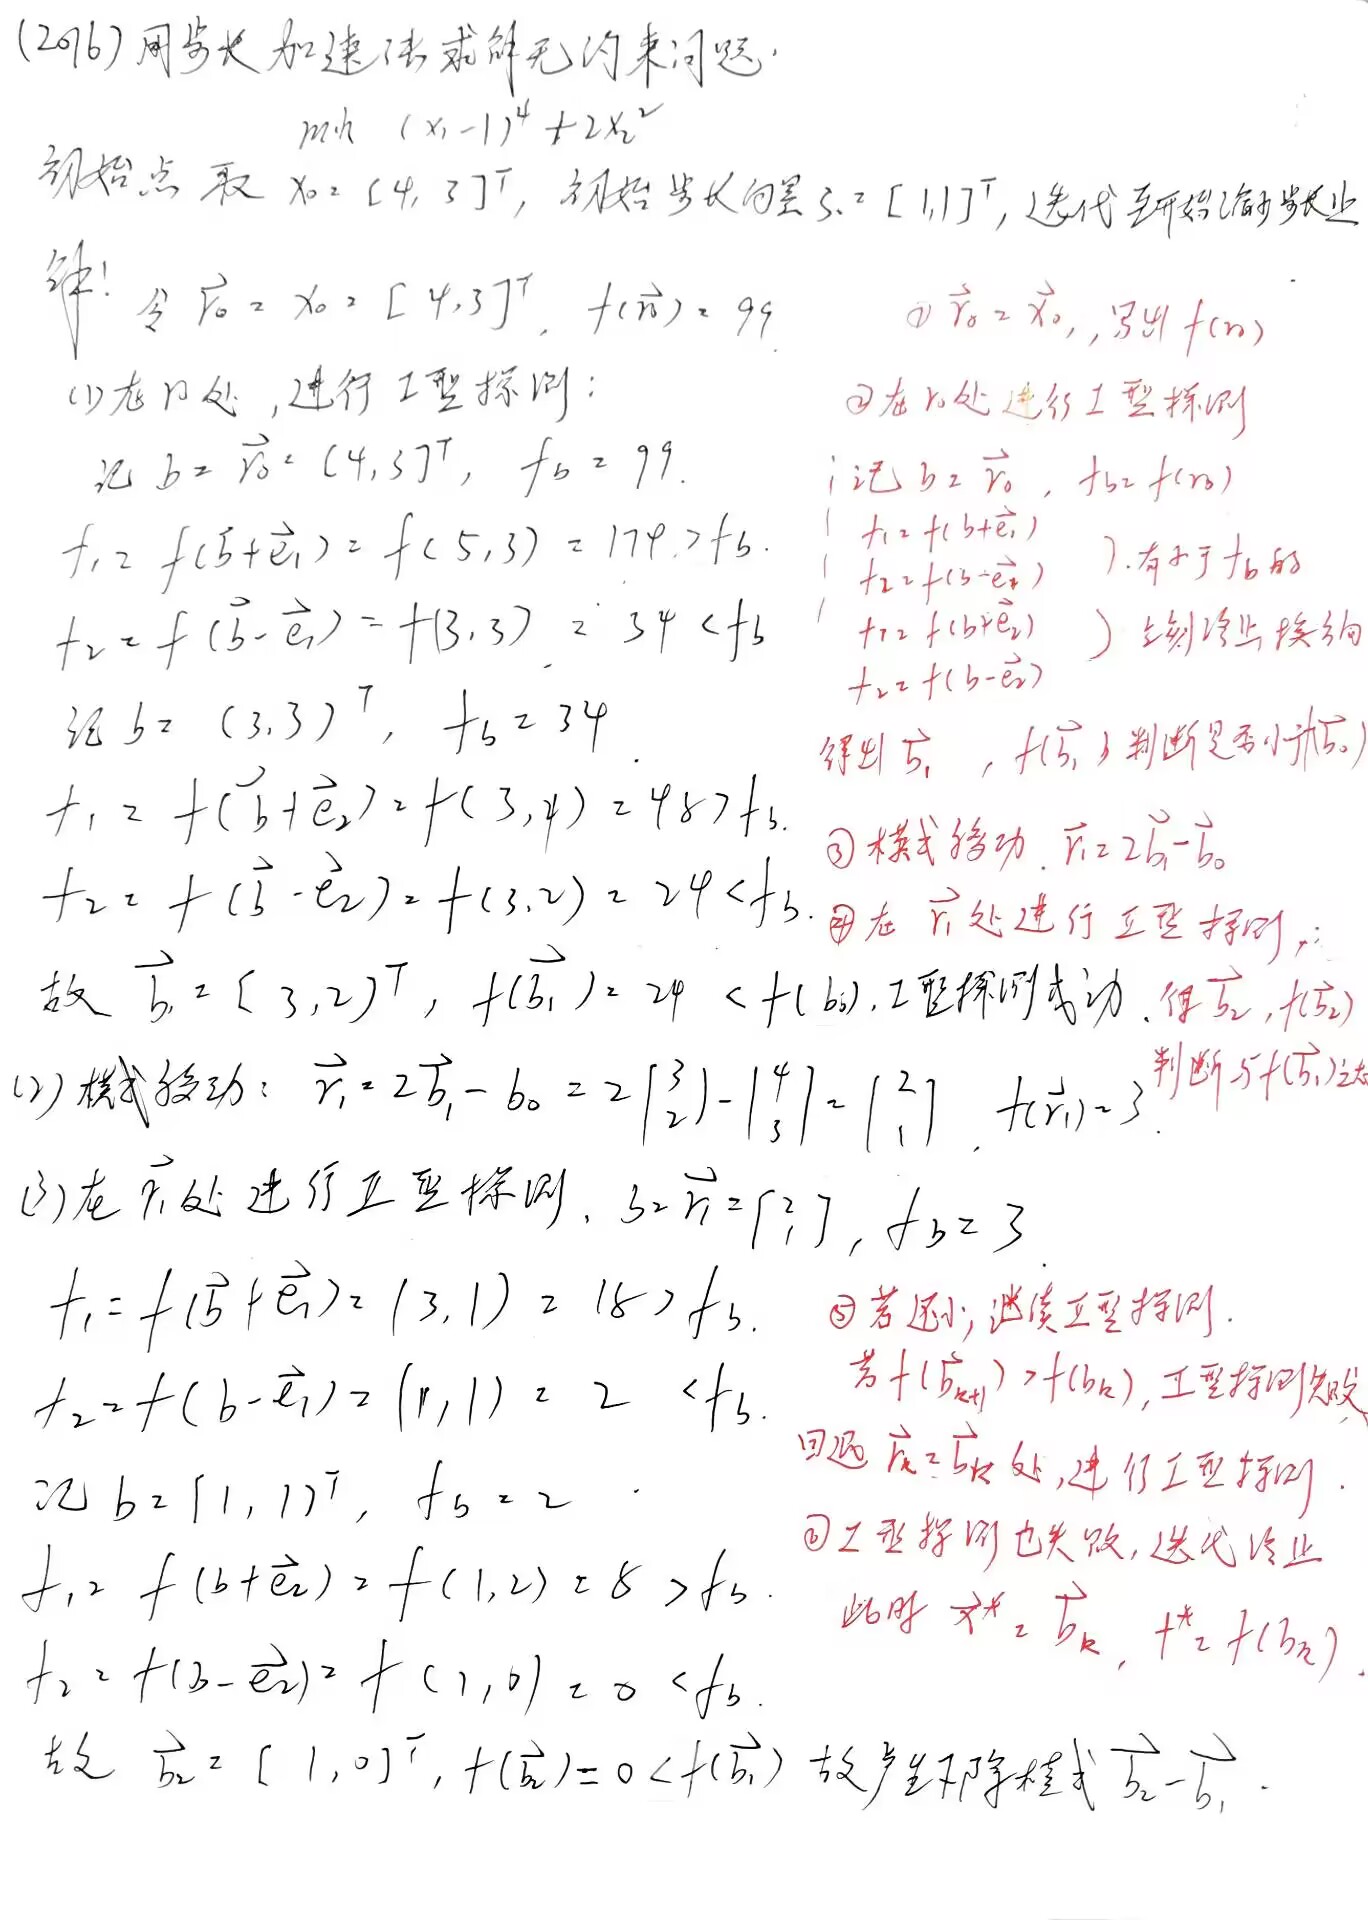 (2016)用步长加速法求解无约束问题.
min (x₁-1)⁴+2x₂²
初始点取 x₀=[4,3]ᵀ, 初始步长向量 s₀=[1,1]ᵀ, 迭代至开始缩小步长止
解: 令 r⃗₀=x₀=[4,3]ᵀ, f(r⃗₀)=99
(1)在r₀处,进行I型探测:
记 b=r⃗₀=(4,3)ᵀ, f_b=99.
f₁=f(b⃗+e⃗₁)=f(5,3)=174>f_b.
f₂=f(b⃗-e⃗₁)=f(3,3)=34<f_b
记 b=(3,3)ᵀ, f_b=34.
f₁=f(b⃗+e⃗₂)=f(3,4)=48>f_b.
f₂=f(b⃗-e⃗₂)=f(3,2)=24<f_b.
故 b⃗₁=[3,2]ᵀ, f(b⃗₁)=24<f(b₀), I型探测成功.
(2)模式移动: r⃗₁=2b⃗₁-b₀=2[3 2]-[4 3]=[2 1], f(r⃗₁)=3.
(3)在r⃗₁处进行II型探测, b=r⃗₁=[2 1], f_b=3.
f₁=f(b⃗+e⃗₁)=(3,1)=18>f_b.
f₂=f(b-e⃗₁)=(1,1)=2<f_b.
记 b=[1,1]ᵀ, f_b=2.
f₁=f(b+e⃗₂)=f(1,2)=8>f_b.
f₂=f(b-e⃗₂)=f(1,0)=0<f_b.
故 b⃗₂=[1,0]ᵀ, f(b⃗₂)=0<f(b⃗₁) 故产生下降模式 b⃗₂-b⃗₁.
① r⃗₀=x⃗₀, 写出f(r₀)
②在r₀处进行I型探测
记 b=r⃗₀, f_b=f(r₀)
f₁=f(b+e⃗₁)
f₂=f(b-e⃗₁)
).有小于f_b的
f₁=f(b+e⃗₂)
)立刻停止换方向
f₂=f(b-e⃗₂)
得出b⃗₁, f(b⃗₁)判断是否小于f(b⃗₀)
③模式移动. r⃗₁=2b⃗₁-b⃗₀
④在r⃗₁处进行II型探测,
得b⃗₂, f(b⃗₂)
判断与f(b⃗₁)
⑤若还小,继续II型探测.
若f(b⃗ₖ₊₁)>f(bₖ), II型探测失败
回退r⃗ₖ=b⃗ₖ处,进行I型探测.
⑥I型探测也失败,迭代停止
此时 x⃗*=b⃗ₖ, f*=f(bₖ).